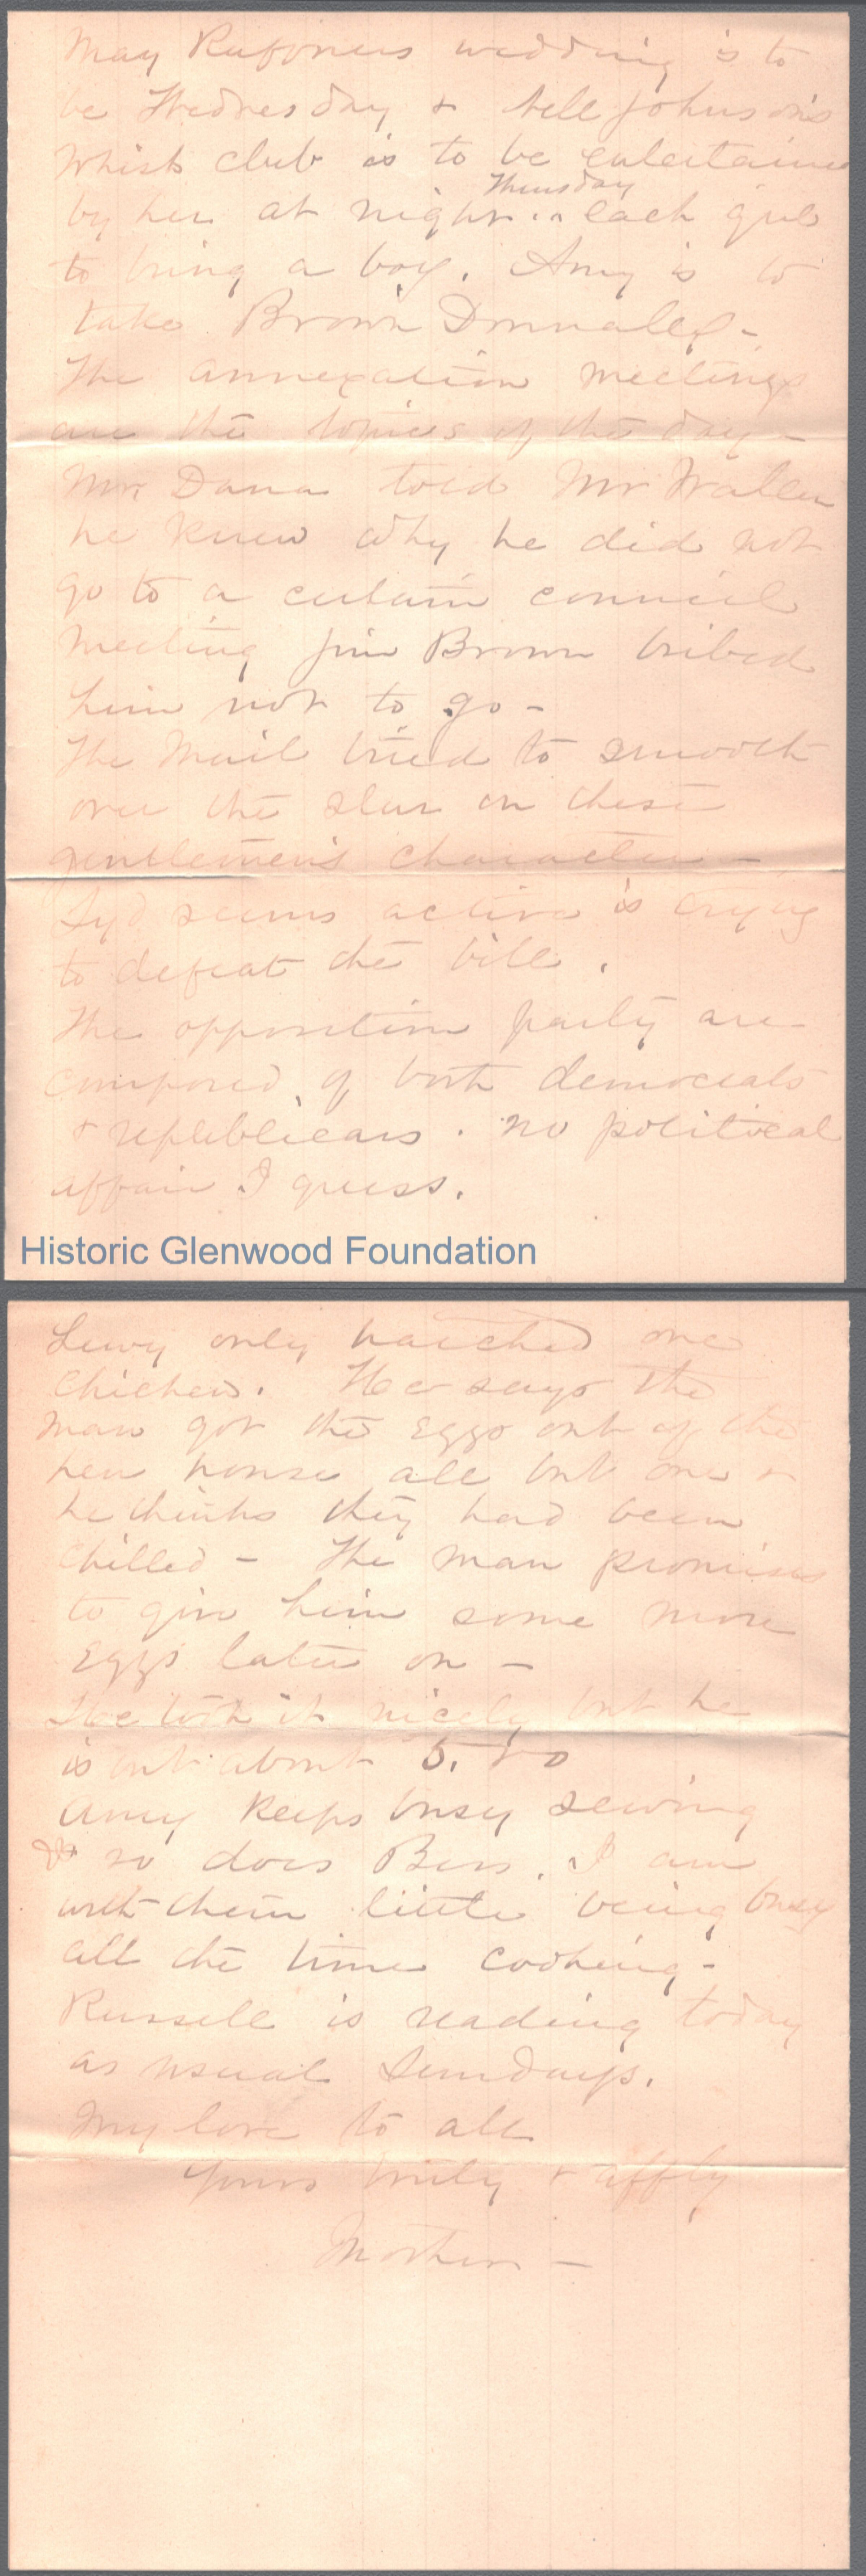 May Ruffners wedding is to
be Wednesday & Nell Johnson's
Whist club is to be entertained
Thursday
by her at night .. each girl
to bring a boy. Amy is to
take Brown Donnally -
The annexation meetings
are the topics of the day -
Mr. Dana told Mr Wallen
he knew why he did not
go to a certain council
meeting Jim Brown bribed
him not to go -
The Mail tried to smooth
over the slur on these
gentlemen's character -
Syd seems active is trying
to defeat the bill.
The opposition party are
composed of both democrats
& republicans . no political
affair I guess.
Historic Glenwood Foundation
Lewy only hatched one
chicken. He says the
man got the eggs out of the
hen house all but one &
he thinks they had been
chilled - The man promises
to give him some more
eggs later on -
He took it nicely but he
is out about 5.
Amy keeps busy sewing
& so does Bess. I am
with them little being busy
all the time cooking -
Russell is reading today
as usual Sundays.
My love to all
Yours truly & affly
Mother -